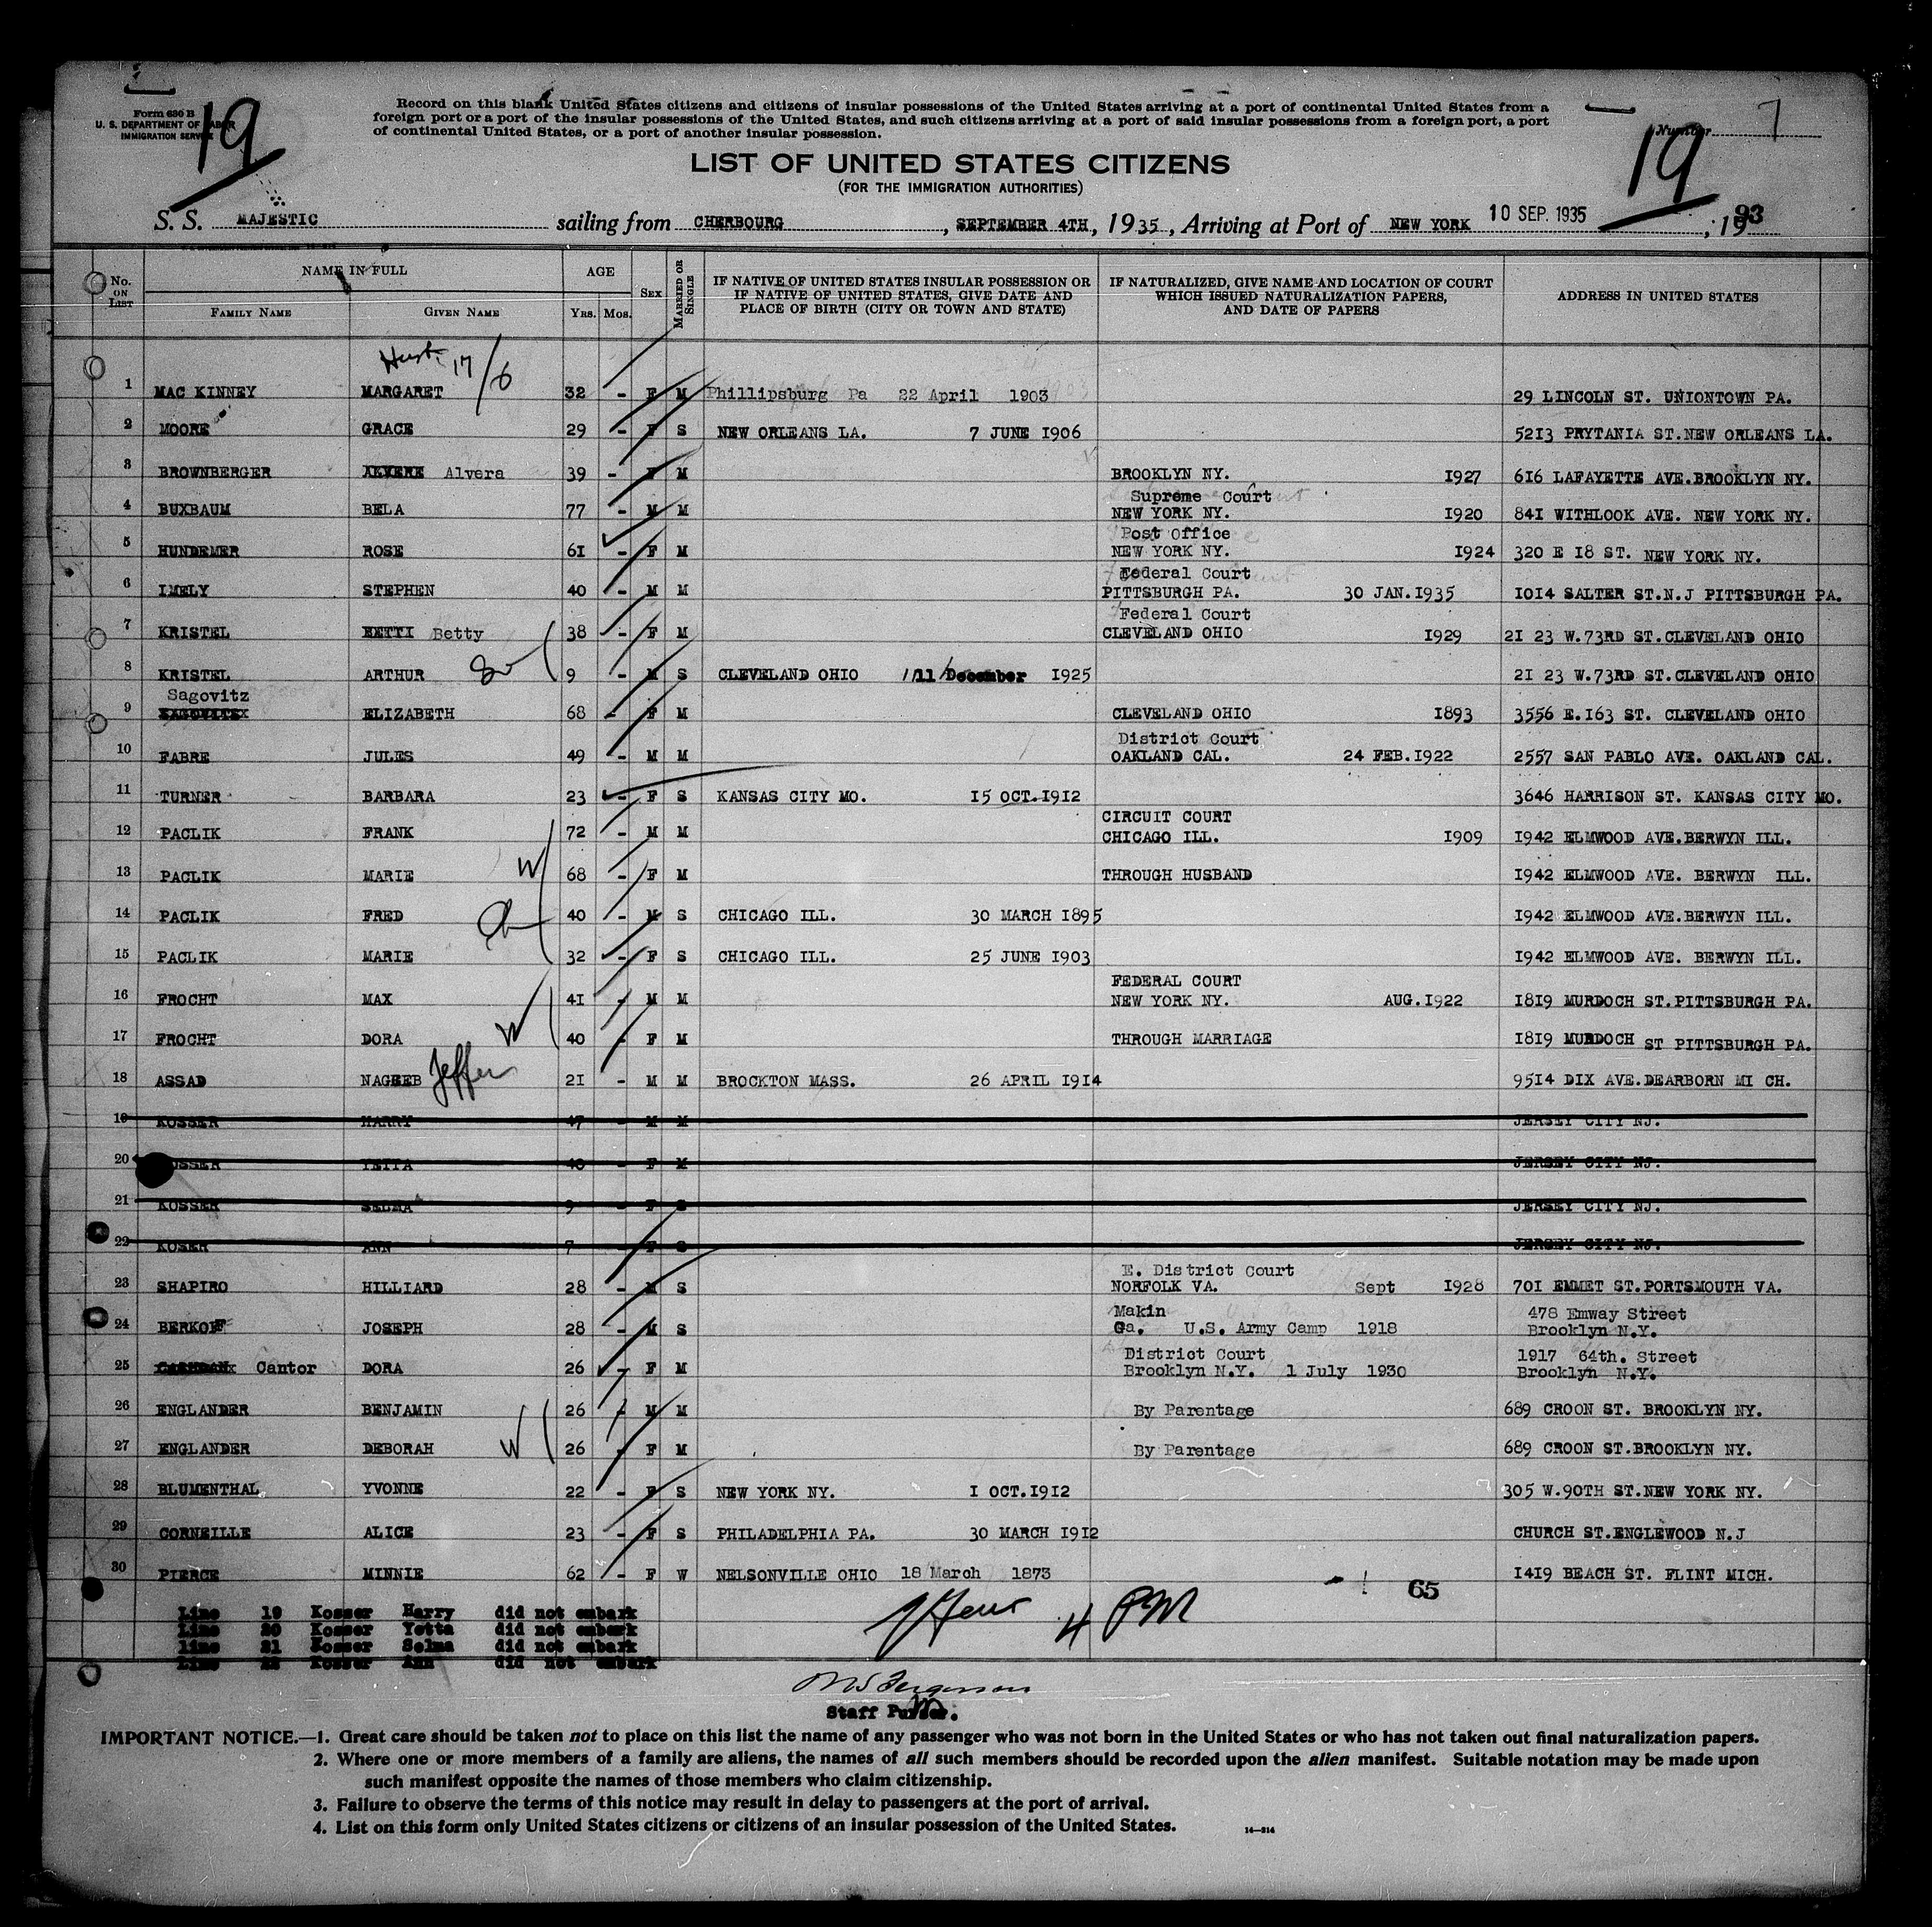 Form 630 B
U. S. DEPARTMENT OF LABOR
IMMIGRATION SERVICE
19
Record on this blank United States citizens and citizens of insular possessions of the United States arriving at a port of continental United States from a
foreign port or a port of the insular possessions of the United States, and such citizens arriving at a port of said insular possessions from a foreign port, a port
of continental United States, or a port of another insular possession.
Number 7
19
LIST OF UNITED STATES CITIZENS
(FOR THE IMMIGRATION AUTHORITIES)
S. S. MAJESTIC sailing from CHERBOURG, SEPTEMBER 4TH, 1935, Arriving at Port of NEW YORK 10 SEP. 1935, 19 93
No. ON LIST NAME IN FULL FAMILY NAME GIVEN NAME AGE Yrs. Mos. SEX MARRIED OR SINGLE IF NATIVE OF UNITED STATES INSULAR POSSESSION OR IF NATIVE OF UNITED STATES, GIVE DATE AND PLACE OF BIRTH (CITY OR TOWN AND STATE) IF NATURALIZED, GIVE NAME AND LOCATION OF COURT WHICH ISSUED NATURALIZATION PAPERS, AND DATE OF PAPERS ADDRESS IN UNITED STATES
17/6
1 MAC KINNEY MARGARET 32 - F M Phillipsburg Pa 22 April 1903 29 LINCOLN ST. UNIONTOWN PA.
2 MOORE GRACE 29 - F S NEW ORLEANS LA. 7 JUNE 1906 5213 PRYTANIA ST.NEW ORLEANS LA.
3 BROWNBERGER Alvera 39 - F M BROOKLYN NY. 1927 616 LAFAYETTE AVE.BROOKLYN NY.
Supreme Court
4 BUXBAUM BELA 77 - M M NEW YORK NY. 1920 841 WITHLOOK AVE. NEW YORK NY.
Post Office
5 HUNDEMER ROSE 61 - F M NEW YORK NY. 1924 320 E 18 ST. NEW YORK NY.
Federal Court
6 IMELY STEPHEN 40 - M M PITTSBURGH PA. 30 JAN.1935 1014 SALTER ST.N.J PITTSBURGH PA.
Federal Court
7 KRISTEL BETTI Betty 38 - F M CLEVELAND OHIO 1929 21 23 W.73RD ST.CLEVELAND OHIO
8 KRISTEL ARTHUR 9 - M S CLEVELAND OHIO 11 December 1925 21 23 W.73RD ST.CLEVELAND OHIO
Sagovitz
9 ELIZABETH 68 - F M CLEVELAND OHIO 1893 3556 E.163 ST. CLEVELAND OHIO
District Court
10 FABRE JULES 49 - M M OAKLAND CAL. 24 FEB.1922 2557 SAN PABLO AVE. OAKLAND CAL.
11 TURNER BARBARA 23 - F S KANSAS CITY MO. 15 OCT.1912 3646 HARRISON ST. KANSAS CITY MO.
CIRCUIT COURT
12 PACLIK FRANK 72 - M M CHICAGO ILL. 1909 1942 ELMWOOD AVE.BERWYN ILL.
13 PACLIK MARIE W 68 - F M THROUGH HUSBAND 1942 ELMWOOD AVE. BERWYN ILL.
14 PACLIK FRED 40 - M S CHICAGO ILL. 30 MARCH 1895 1942 ELMWOOD AVE.BERWYN ILL.
15 PACLIK MARIE 32 - F S CHICAGO ILL. 25 JUNE 1903 1942 ELMWOOD AVE. BERWYN ILL.
FEDERAL COURT
16 FROCHT MAX 41 - M M NEW YORK NY. AUG.1922 1819 MURDOCH ST.PITTSBURGH PA.
17 FROCHT DORA W 40 - F M THROUGH MARRIAGE 1819 MURDOCH ST PITTSBURGH PA.
18 ASSAD NAGEEB 21 - M M BROCKTON MASS. 26 APRIL 1914 9514 DIX AVE.DEARBORN MI CH.
19 KOSSER HARRY 47 - M M JERSEY CITY NJ.
20 KOSSER YETTA 40 - F M JERSEY CITY NJ.
21 KOSSER SELMA 9 - F S JERSEY CITY NJ.
22 KOSER ANN 7 - F S JERSEY CITY NJ.
E. District Court
23 SHAPIRO HILLIARD 28 - M S NORFOLK VA. Sept 1928 701 EMMET ST.PORTSMOUTH VA.
Makin 478 Emway Street
24 BERKOFF JOSEPH 28 - M S Ga. U.S. Army Camp 1918 Brooklyn N.Y.
District Court 1917 64th. Street
25 Cantor DORA 26 - F M Brooklyn N.Y. 1 July 1930 Brooklyn N.Y.
26 ENGLANDER BENJAMIN 26 - M M By Parentage 689 CROON ST. BROOKLYN NY.
27 ENGLANDER DEBORAH W 26 - F M By Parentage 689 CROON ST.BROOKLYN NY.
28 BLUMENTHAL YVONNE 22 - F S NEW YORK NY. 1 OCT.1912 305 W.90TH ST.NEW YORK NY.
29 CORNEILLE ALICE 23 - F S PHILADELPHIA PA. 30 MARCH 1912 CHURCH ST.ENGLEWOOD N.J
30 PIERCE MINNIE 62 - F W NELSONVILLE OHIO 18 March 1873 1419 BEACH ST. FLINT MICH.
65
4 PM
Line 19 Kosser Harry did not embark
Line 20 Kosser Yetta did not embark
line 21 Kosser Selma did not embark
Line 22 Kosser Ann did not embark
Ferguson
Staff Purser.
IMPORTANT NOTICE.—1. Great care should be taken not to place on this list the name of any passenger who was not born in the United States or who has not taken out final naturalization papers.
2. Where one or more members of a family are aliens, the names of all such members should be recorded upon the alien manifest. Suitable notation may be made upon
such manifest opposite the names of those members who claim citizenship.
3. Failure to observe the terms of this notice may result in delay to passengers at the port of arrival.
4. List on this form only United States citizens or citizens of an insular possession of the United States.
14—814